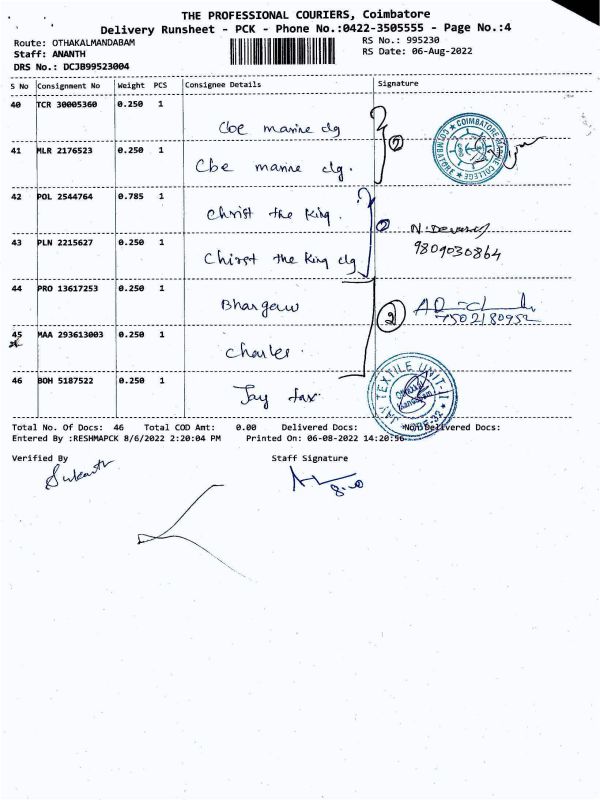 THE PROFESSIONAL COURIERS, Coimbatore
Delivery Runsheet - PCK - Phone No.:0422-3505555 - Page No.:4
Route: OTHAKALMANDABAM RS No.: 995230
Staff: ANANTH RS Date: 06-Aug-2022
DRS No.: DCJB99523004
S No Consignment No Weight PCS Consignee Details Signature
40 TCR 30005360 0.250 1
Cbe marine clg
COIMBATORE MARINE COLLEGE
41 MLR 2176523 0.250 1
Cbe marine clg.
42 POL 2544764 0.785 1
Christ the King.
43 PLN 2215627 0.250 1
Chirst the King clg
9809030864
44 PRO 13617253 0.250 1
Bhargaw
2
7502180952
45 MAA 293613003 0.250 1
Charles.
46 BOH 5187522 0.250 1
Jay tax.
JAY TEXTILE UNIT-II
Total No. Of Docs: 46 Total COD Amt: 0.00 Delivered Docs: Non Delivered Docs:
Entered By :RESHMAPCK 8/6/2022 2:20:04 PM Printed On: 06-08-2022 14:20:56
Verified By Staff Signature